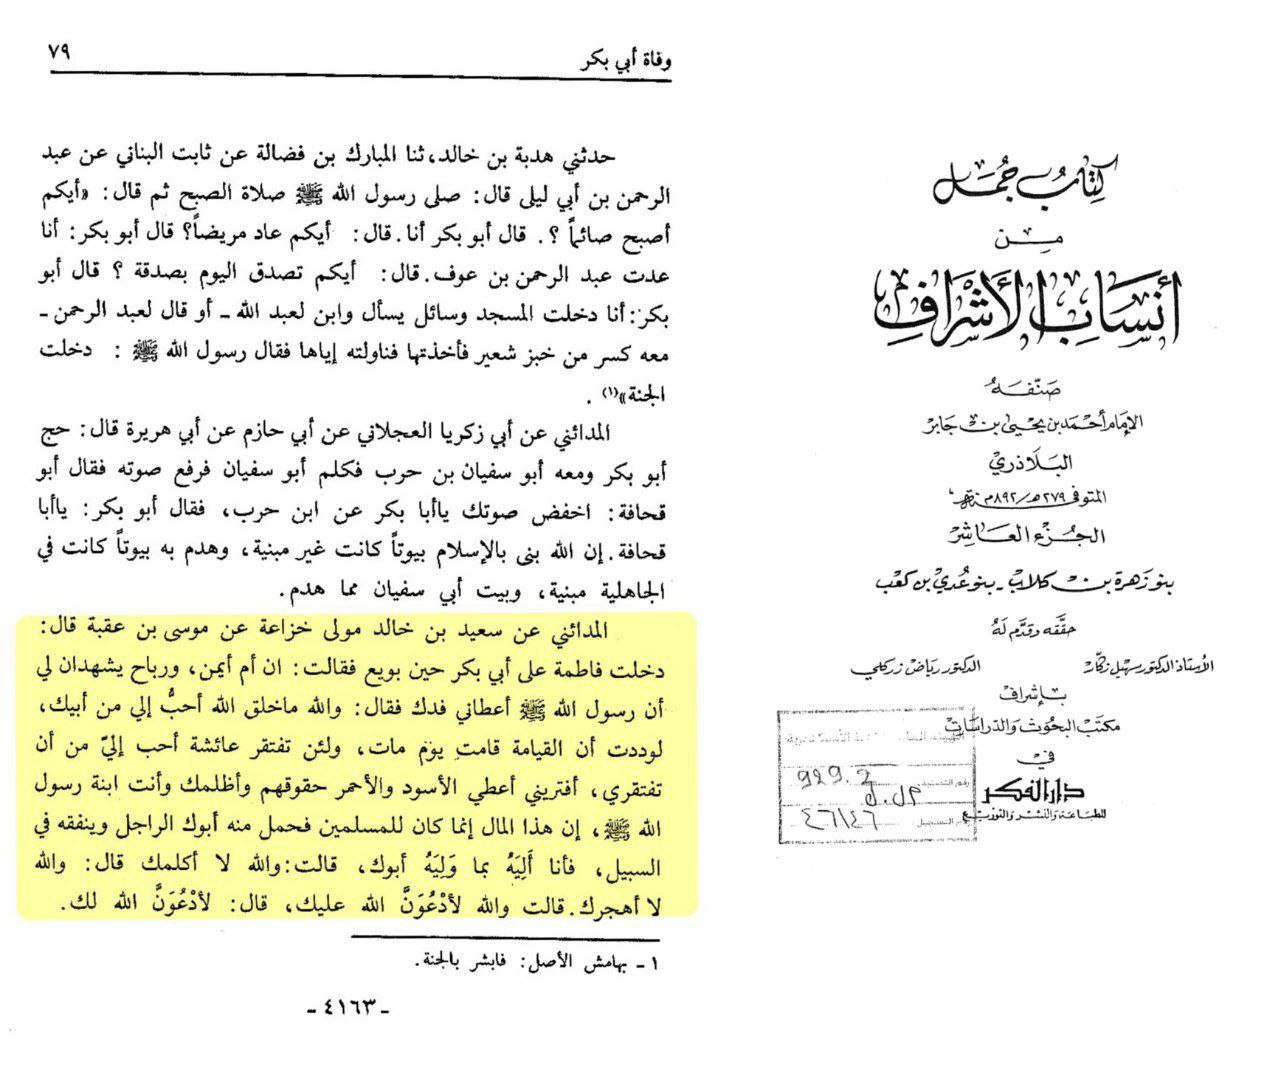 كتاب جمل
من
أنساب الأشراف
صنّفه
الإمام أحمد بن يحيى بن جابر
البلاذري
المتوفى ٢٧٩هـ/٨٩٢م
الجزء العاشر
بنو زهرة بن كلاب - بنو عدي بن كعب
حققه وقدّم له
الأستاذ الدكتور سهيل زكار الدكتور رياض زركلي
بإشراف
مكتب البحوث والدراسات
في
دار الفكر
للطباعة والنشر والتوزيع
929.2
٤٦١٤٦
وفاة أبي بكر ٧٩
حدثني هدبة بن خالد، ثنا المبارك بن فضالة عن ثابت البناني عن عبد
الرحمن بن أبي ليلى قال: صلى رسول الله ﷺ صلاة الصبح ثم قال: «أيكم
أصبح صائماً ؟. قال أبو بكر أنا. قال: أيكم عاد مريضاً؟ قال أبو بكر: أنا
عدت عبد الرحمن بن عوف. قال: أيكم تصدق اليوم بصدقة ؟ قال أبو
بكر: أنا دخلت المسجد وسائل يسأل وابن لعبد الله ـ أو قال لعبد الرحمن ـ
معه كسر من خبز شعير فأخذتها فناولته إياها فقال رسول الله ﷺ : دخلت
الجنة»(١) .
المدائني عن أبي زكريا العجلاني عن أبي حازم عن أبي هريرة قال: حج
أبو بكر ومعه أبو سفيان بن حرب فكلم أبو سفيان فرفع صوته فقال أبو
قحافة: اخفض صوتك ياأبا بكر عن ابن حرب، فقال أبو بكر: ياأبا
قحافة. إن الله بنى بالإسلام بيوتاً كانت غير مبنية، وهدم به بيوتاً كانت في
الجاهلية مبنية، وبيت أبي سفيان مما هدم.
المدائني عن سعيد بن خالد مولى خزاعة عن موسى بن عقبة قال:
دخلت فاطمة على أبي بكر حين بويع فقالت: ان أم أيمن، ورباح يشهدان لي
أن رسول الله ﷺ أعطاني فدك فقال: والله ماخلق الله أحبُّ إلي من أبيك،
لوددت أن القيامة قامت يوم مات، ولئن تفتقر عائشة أحب إليّ من أن
تفتقري، أفتريني أعطي الأسود والأحمر حقوقهم وأظلمك وأنت ابنة رسول
الله ﷺ، إن هذا المال إنما كان للمسلمين فحمل منه أبوك الراجل وينفقه في
السبيل، فأنا أَلِيَهُ بما وَلِيَهُ أبوك، قالت: والله لا أكلمك قال: والله
لا أهجرك. قالت والله لأدْعُوَنَّ الله عليك، قال: لأدْعُوَنَّ الله لك.
١ ـ بهامش الأصل: فابشر بالجنة.
ـ ٤١٦٣ ـ